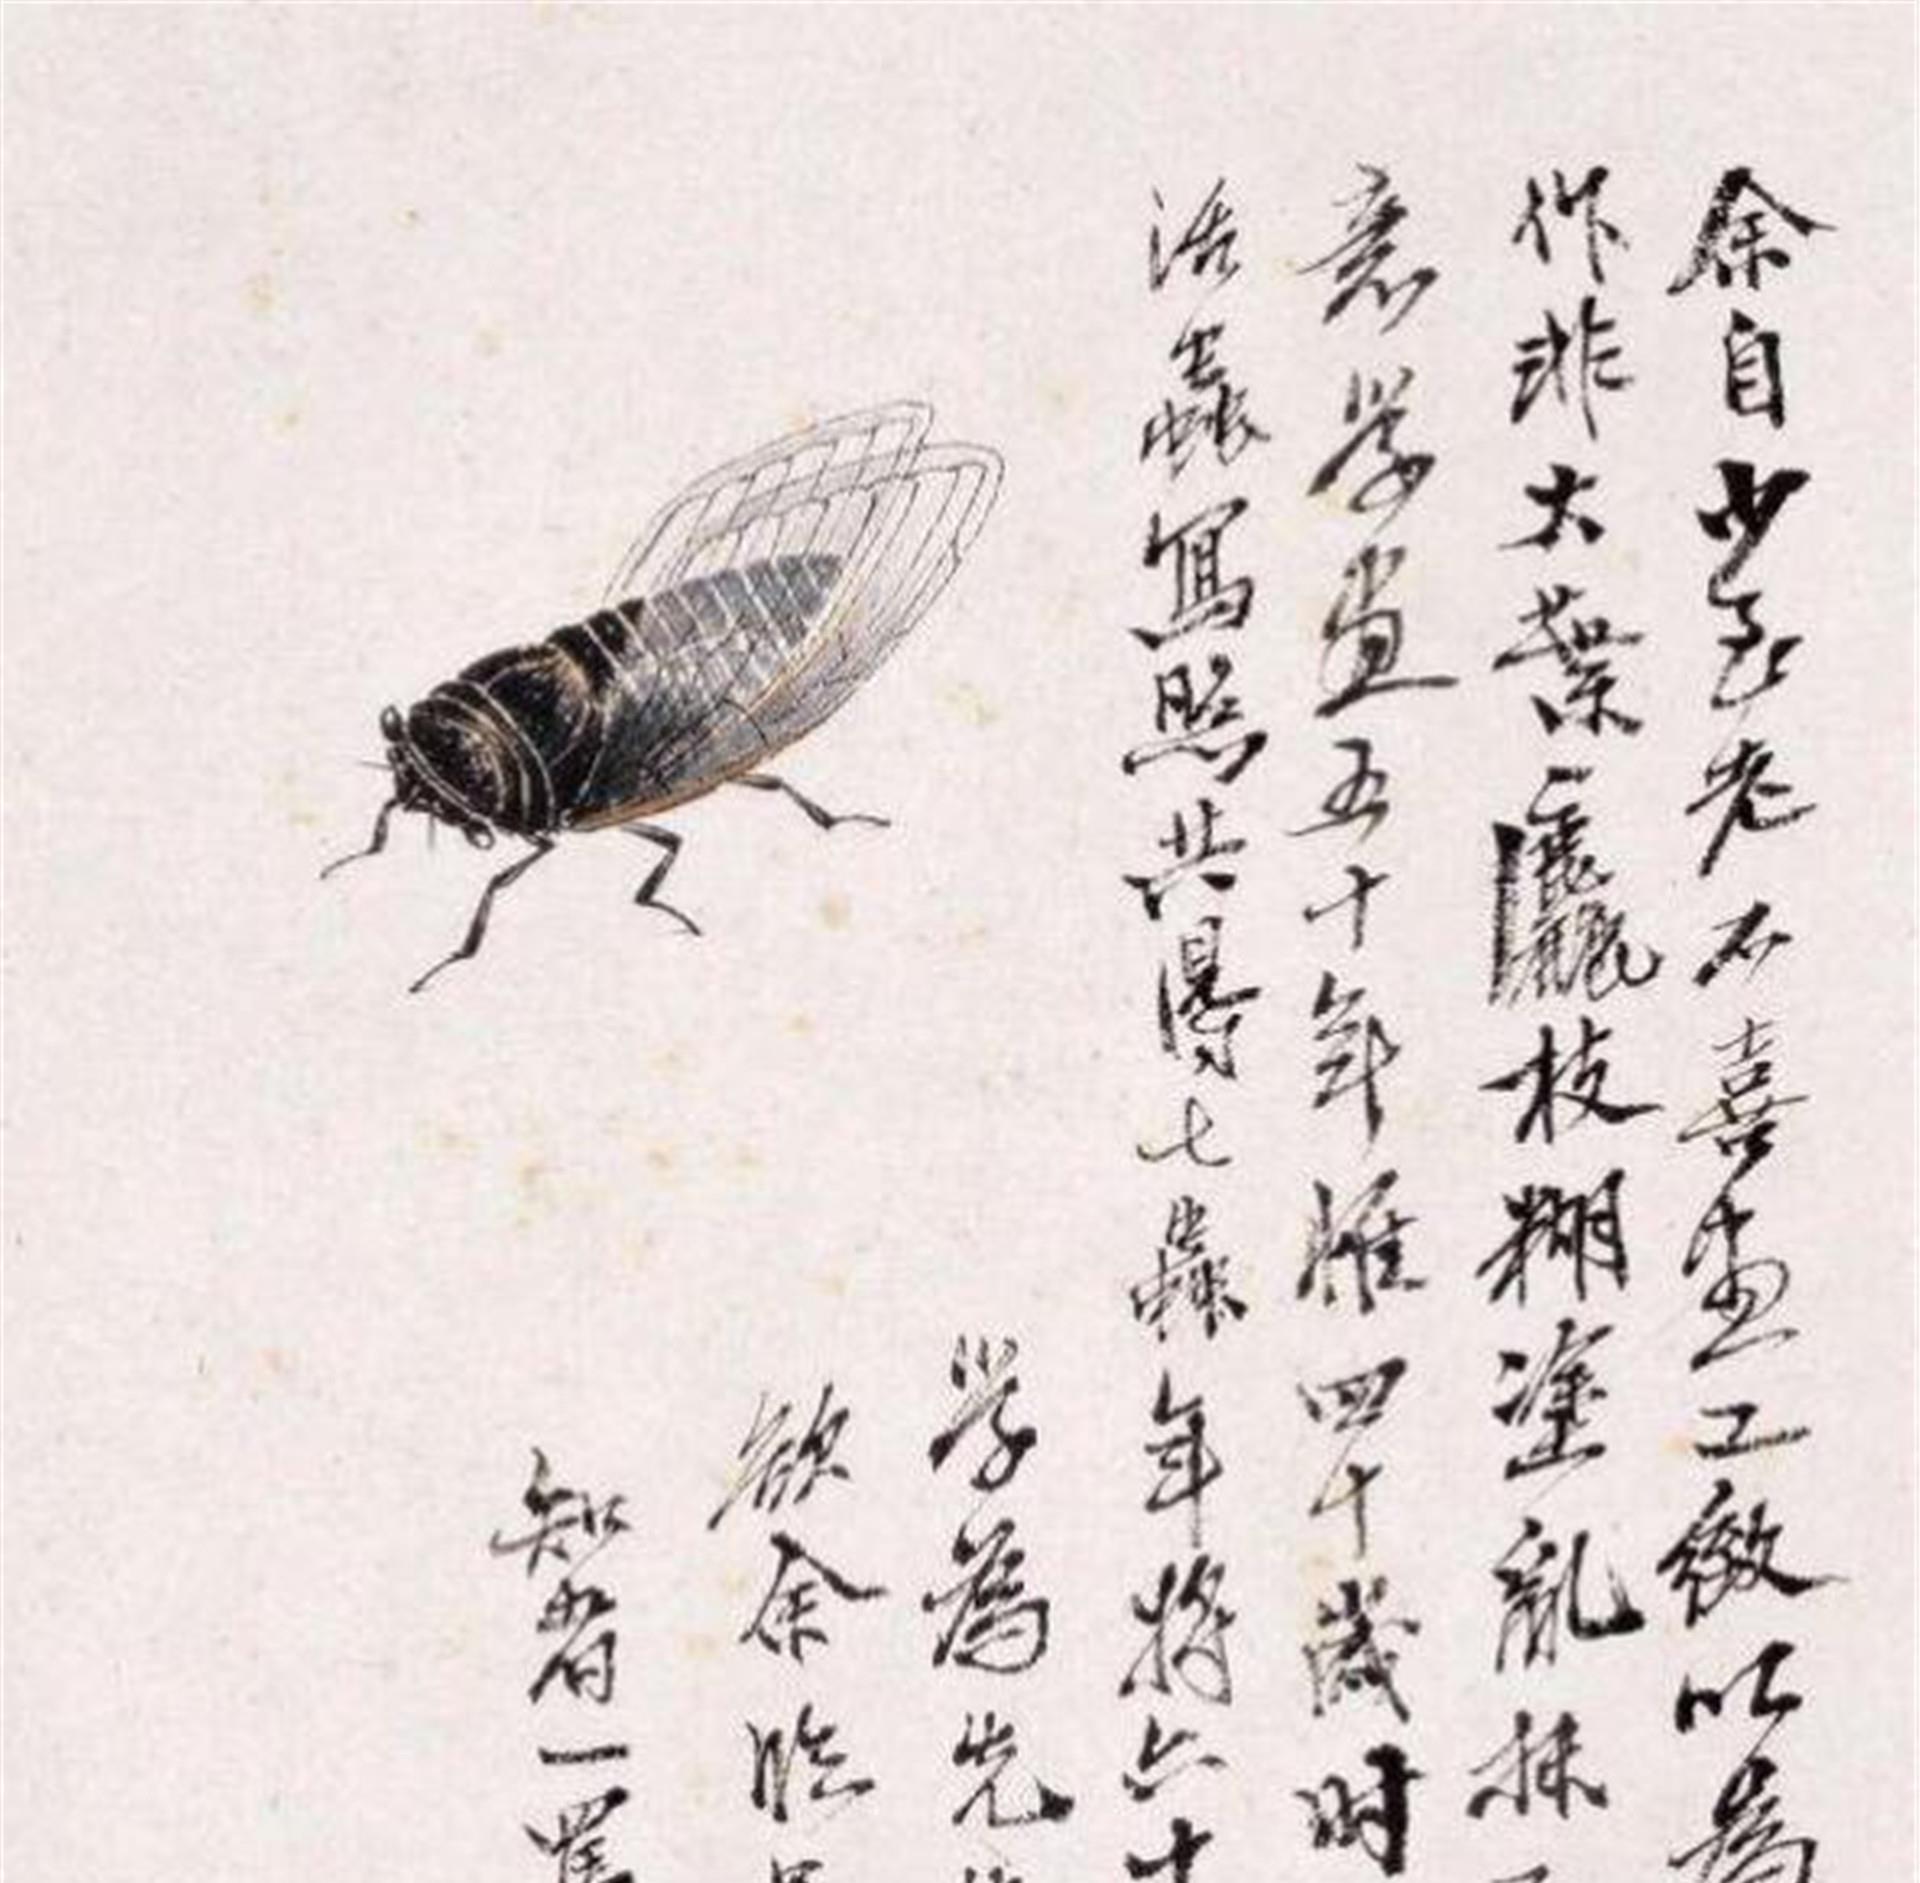 余自少至老不喜畫工緻以為
作非大葉麤枝糊塗亂抹
意學畫五十年惟四十歲時
活蟲寫照共得七蟲年將六十
學為先
欲余臨
知者一罵